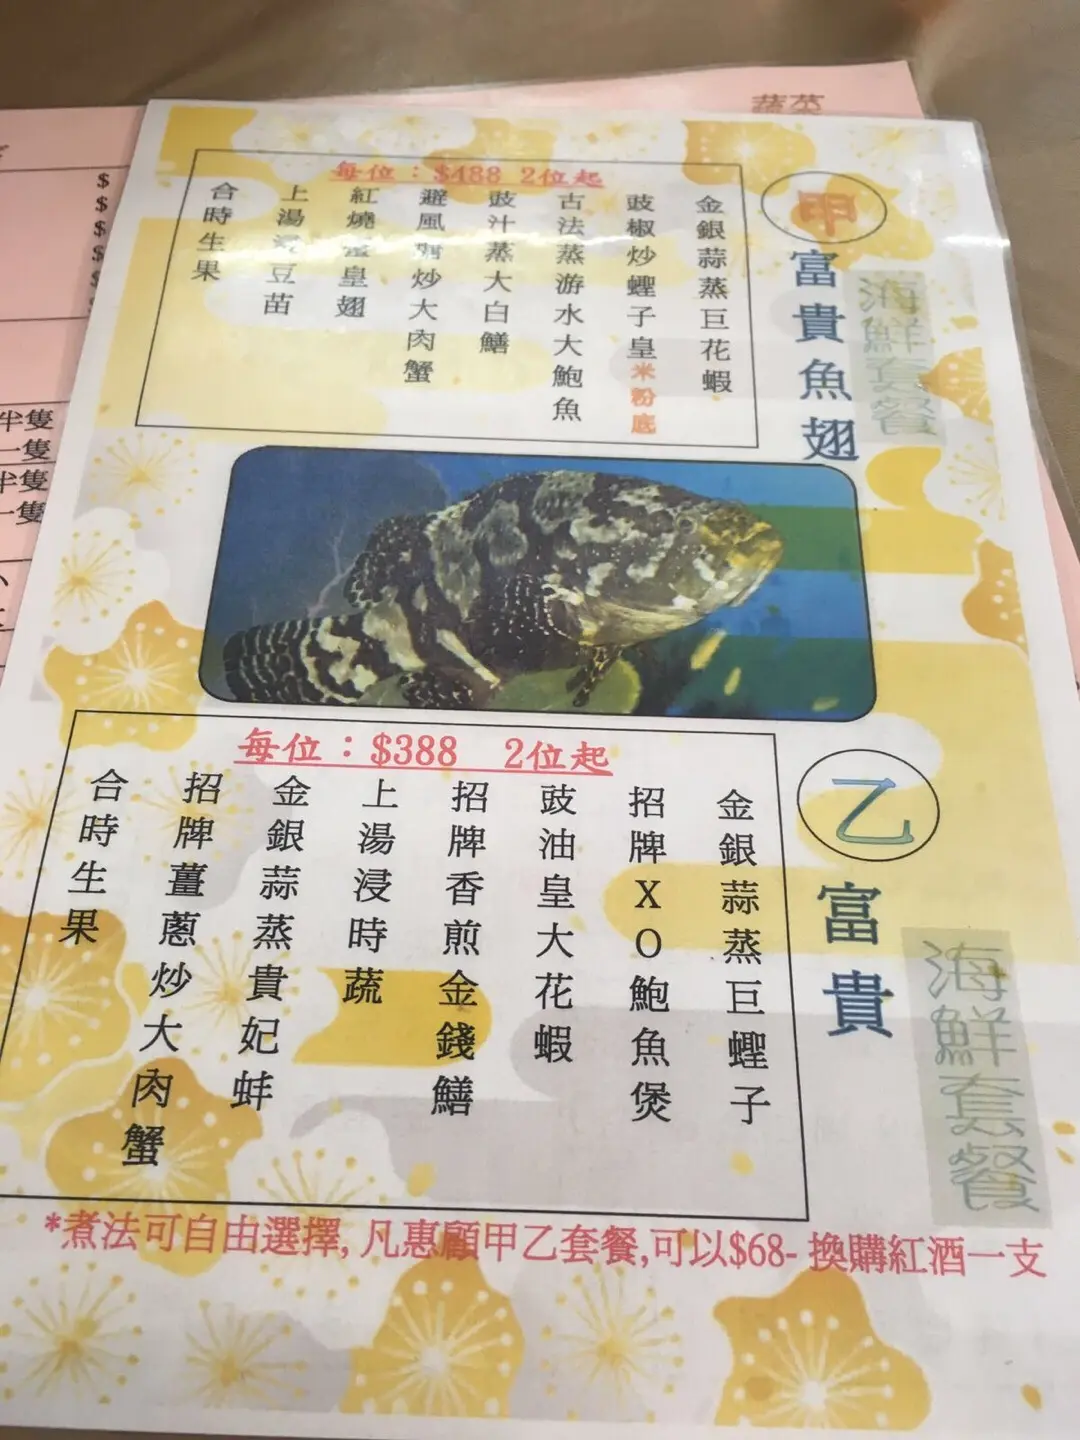 蔬菜
甲
富貴魚翅
海鮮套餐
每位：$488 2位起
金銀蒜蒸巨花蝦
豉椒炒蟶子皇米粉底
古法蒸游水大鮑魚
豉汁蒸大白鱔
避風塘炒大肉蟹
紅燒蟹皇翅
上湯浸豆苗
合時生果
乙
富貴
海鮮套餐
每位：$388 2位起
金銀蒜蒸巨蟶子
招牌XO鮑魚煲
豉油皇大花蝦
招牌香煎金錢鱔
上湯浸時蔬
金銀蒜蒸貴妃蚌
招牌薑蔥炒大肉蟹
合時生果
*煮法可自由選擇, 凡惠顧甲乙套餐,可以$68- 換購紅酒一支
$
$
$
$
半隻
一隻
半隻
一隻